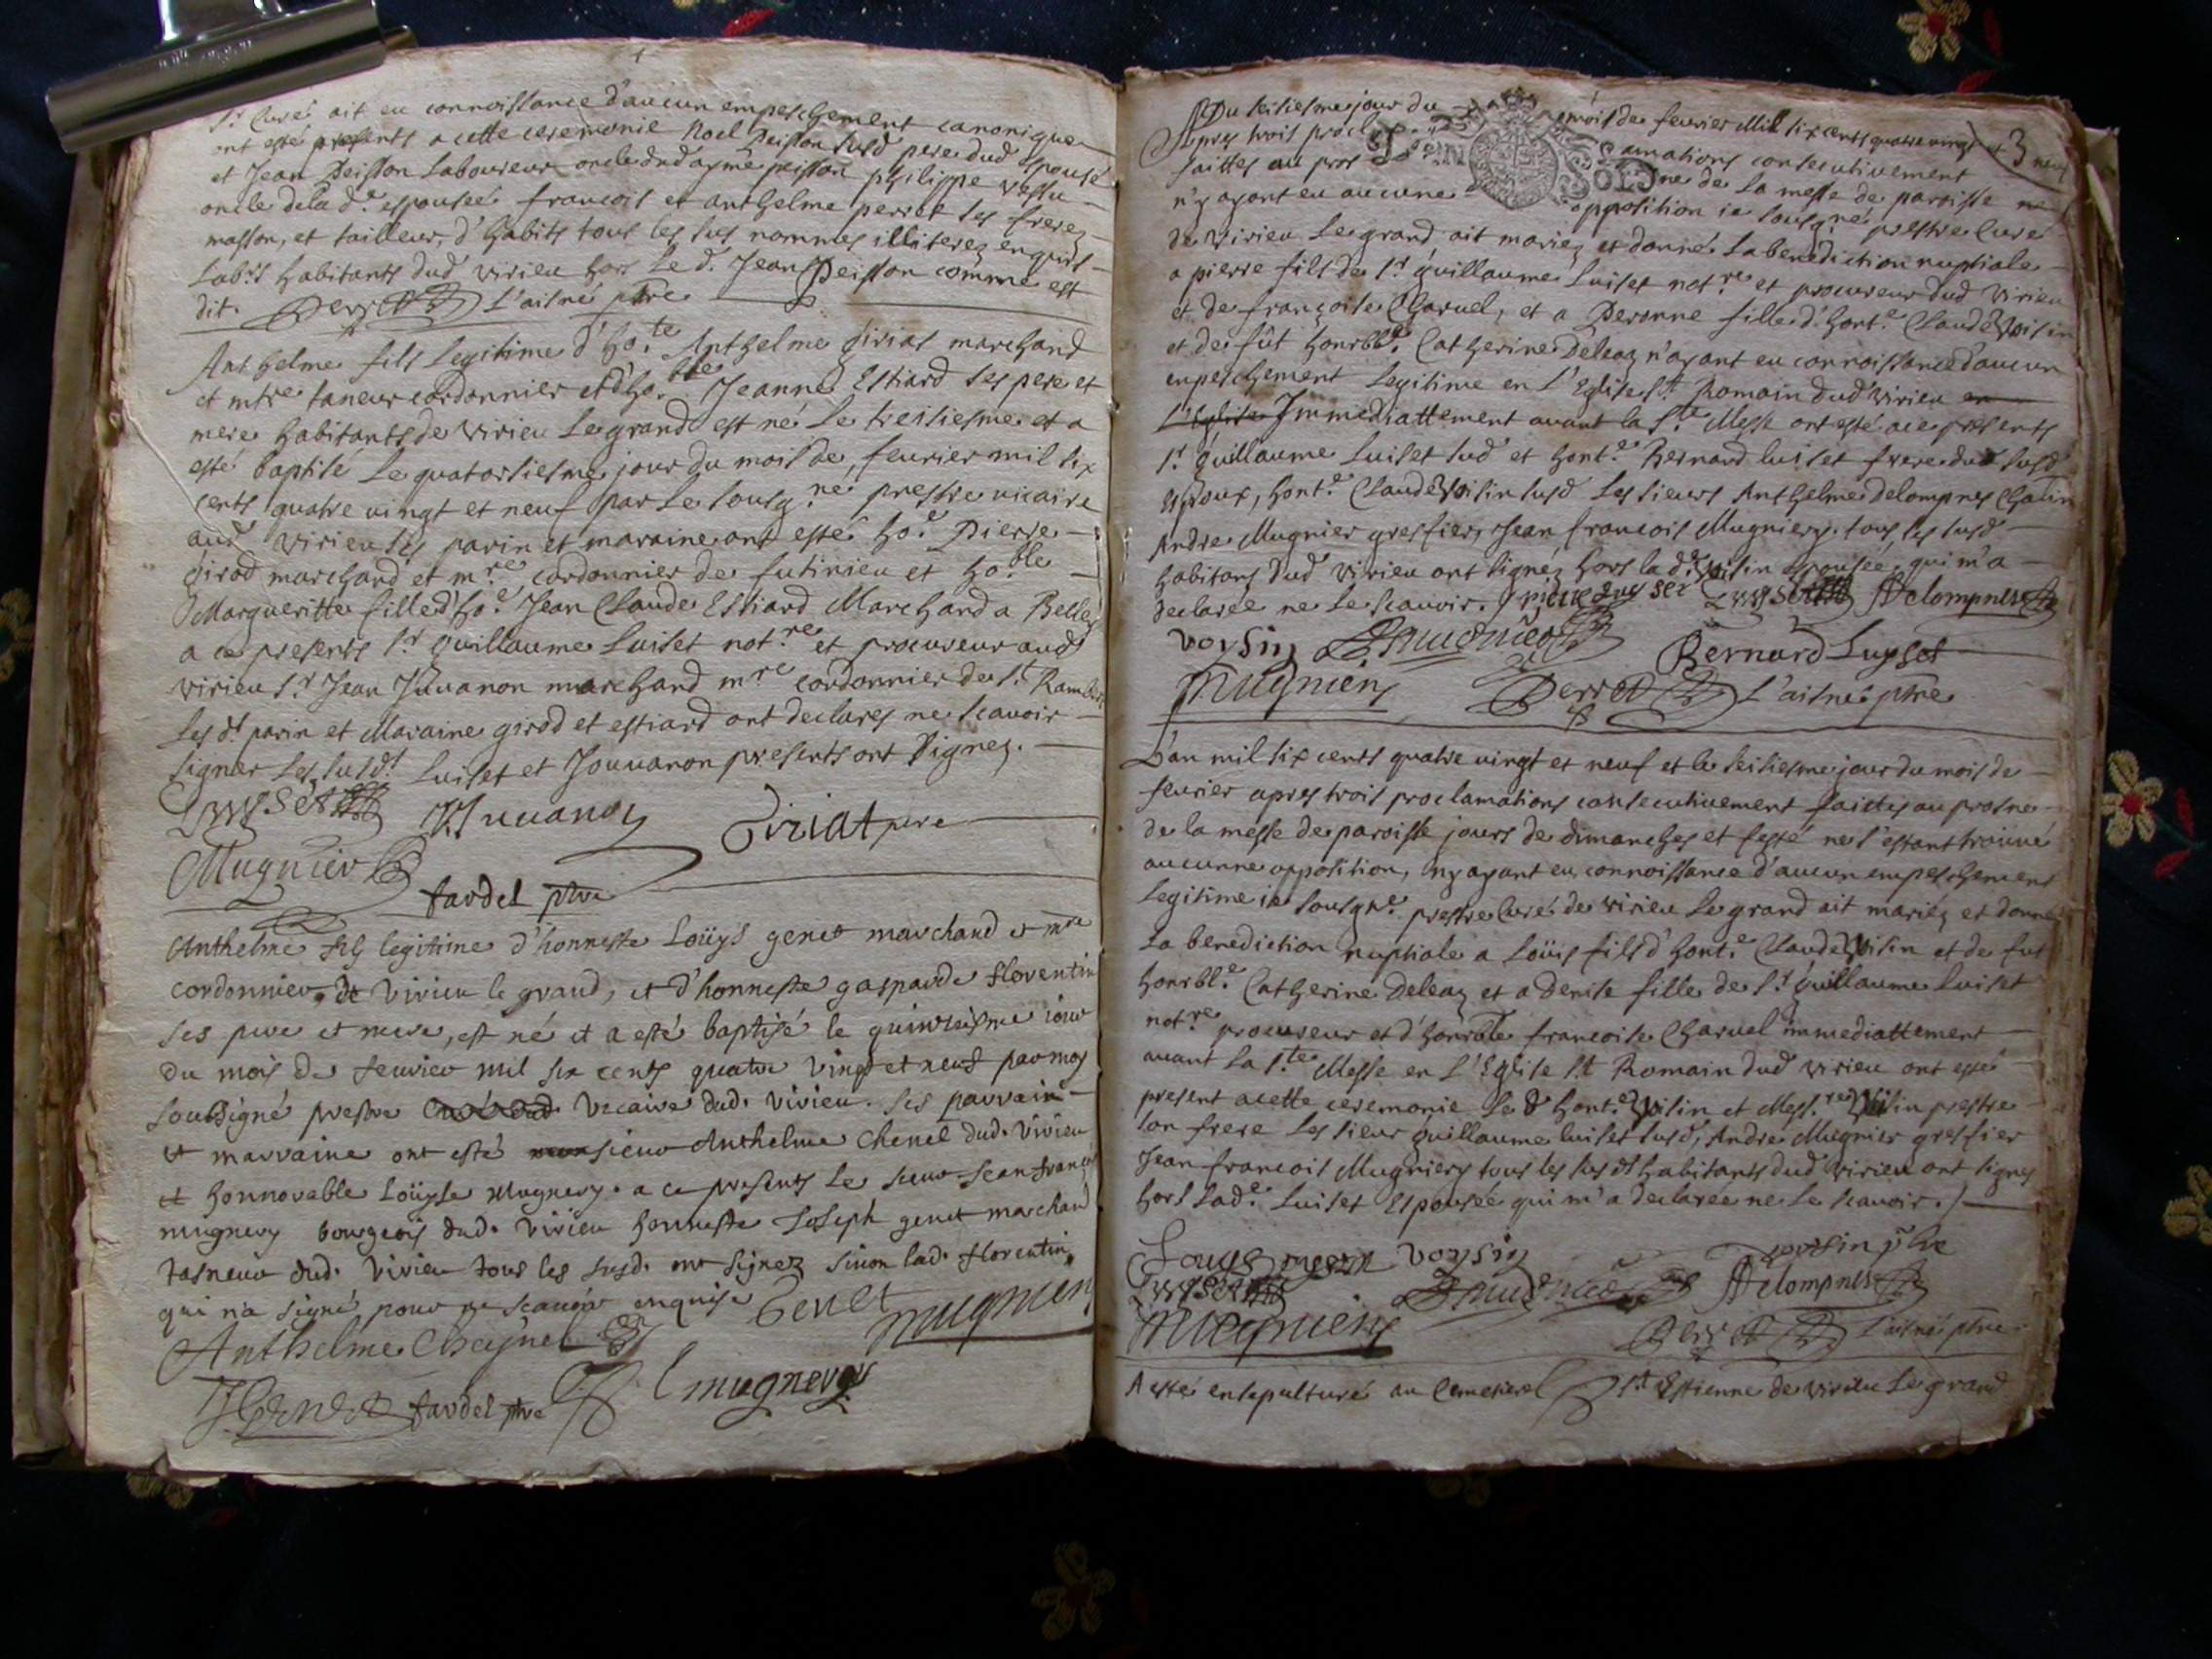 Sr Curé ait eu connoissance d'aucun empeschement canonique
ont esté presents a cette ceremonie Noel Peisson susd pere dud espousé
et Jean Peisson Laboureur oncle dud ayme peisson philippe
oncle de la d.e espousée francois et anthelme perret ses freres
masson, et tailleur, d'habits tous les sus nommes illiterez enquis
Lab.rs habitants dud virieu hors Le d. Jean Peisson comme est
dit. Perret L'aisné ptre
Anthelme fils Legitime d'ho.te Anthelme giriat marchand
et mtre taneur cordonnier et d'ho.ble Jeanne Estiard ses pere et
mere habitants de virieu Le grand est né Le treisiesme et a
esté baptisé Le quatorsiesme jour du mois de, feurier mil six
cents quatre vingt et neuf par Le sousg.né prestre vicaire
aud virieu ses parin et maraine ont esté ho.e Pierre
girod marchand et m.re cordonnier de futinieu et ho.ble
Margueritte fille d'ho.e Jean Claude Estiard Marchand a Belley
a ce presents Sr guillaume Luiset not.re et procureur aud
virieu Sr Jean Juuanon marchand m.re cordonnier de St Rambert
Les dt parin et Maraine girod et estiard ont declares ne scauoir
signer Les susdt Luiset et Jouuanon presents ont signez.
Luyset Juuanon Giriat pere
Mugnier
fardel ptre
Anthelme fils legitime d'honneste Loüys genet marchand et mre
cordonnier, de Virieu le grand, et d'honneste gasparde florentin
ses pere et mere, est né et a esté baptisé le quinziesme iour
du mois de feurier mil six cents quatre vingt et neuf par moy
soubsigné prestre Curé dud. Vicaire dud. Virieu. ses parrain
et marraine ont esté monsieur Anthelme Chenel dud. Virieu
et honnorable Loüyse Mugnery. a ce presents Le sieur Jean francois
mugnery bourgeois dud. Virieu honneste Joseph genet marchand
tasneur dud. Virieu tous les susd. ont signez sinon lad. florentin,
qui n'a signé pour ne scauoir enquise Genet mugniery
Anthelme Cheynel
J Genet fardel ptre L mugnery
Du seisiesme jour du mois de feurier Mil six cents quatre vingt et neuf 3
Apres trois proclamations consecutiuement
faittes au prosne de La messe de paroisse ne
n'y ayant eu aucune opposition ie sousg.né prestre Curé
de virieu Le grand ait mariez et donné La benediction nuptiale
a pierre fils de Sr guillaume Luiset not.re et procureur dud virieu
et de françoise Charuel, et a Peronne fille d'hont.e Claude Voisin
et de fût honrbl.e Catherine Deleaz n'ayant eu connoissance d'aucun
enpeschement Legitime en L'Eglise St Romain dud virieu en
L'Eglise Immediattement auant la S.te Messe ont esté a ce presents
Sr guillaume Luiset susd et hont.e Bernard luiset frere dud susd
Espoux, hont.e Claude Voisin susd Les sieurs Anthelme Delompnes Chatin
Andre Mugnier greffier, Jean francois Mugniery. tous les susd
habitans dud virieu ont signéz hors la d.e Voisin espousée, qui m'a
declarée ne Le scauoir. / pierre Luyset Luyset ADelompnes
voysin Amugnier Bernard Luyset
Mugniery Perret L'aisné ptre
L'an mil six cents quatre uingt et neuf et le seisiesme jour du mois de
feurier apres trois proclamations consecutiuement faictes au prosne
de la messe de paroisse jours de dimanches et feste ne s'estant trouué
aucunne opposition, ny ayant eu connoissance d'aucun empeschement
Legitime ie sousgné. prestre Curé de virieu Le grand ait mariéz et donné
La benediction nuptiale a Loüis fils d'hont.e Claude Voisin et de fut
honrbl.e Catherine Deleaz et a Denise fille de Sr guillaume Luiset
not.re procureur et d'honrable francoise Charuel immediattement
auant La S.te Messe en L'Eglise St Romain dud virieu ont esté
present a cette ceremonie Le d hont.e Voisin et Mess.re Voisin prestre
son frere Les sieur guillaume luiset susd, Andre Mugnier greffier
Jean francois Mugniery tous les susdt habitants dud virieu ont signes
hors Lad.e Luiset Espousée qui m'a declarée ne Le scauoir. /
voysin voysin ptre
Luyset Amugnier ADelompnes
Mugniery Perret L'aisné ptre
A esté ensepulturé au Cemetiere St Estienne de virieu Le grand